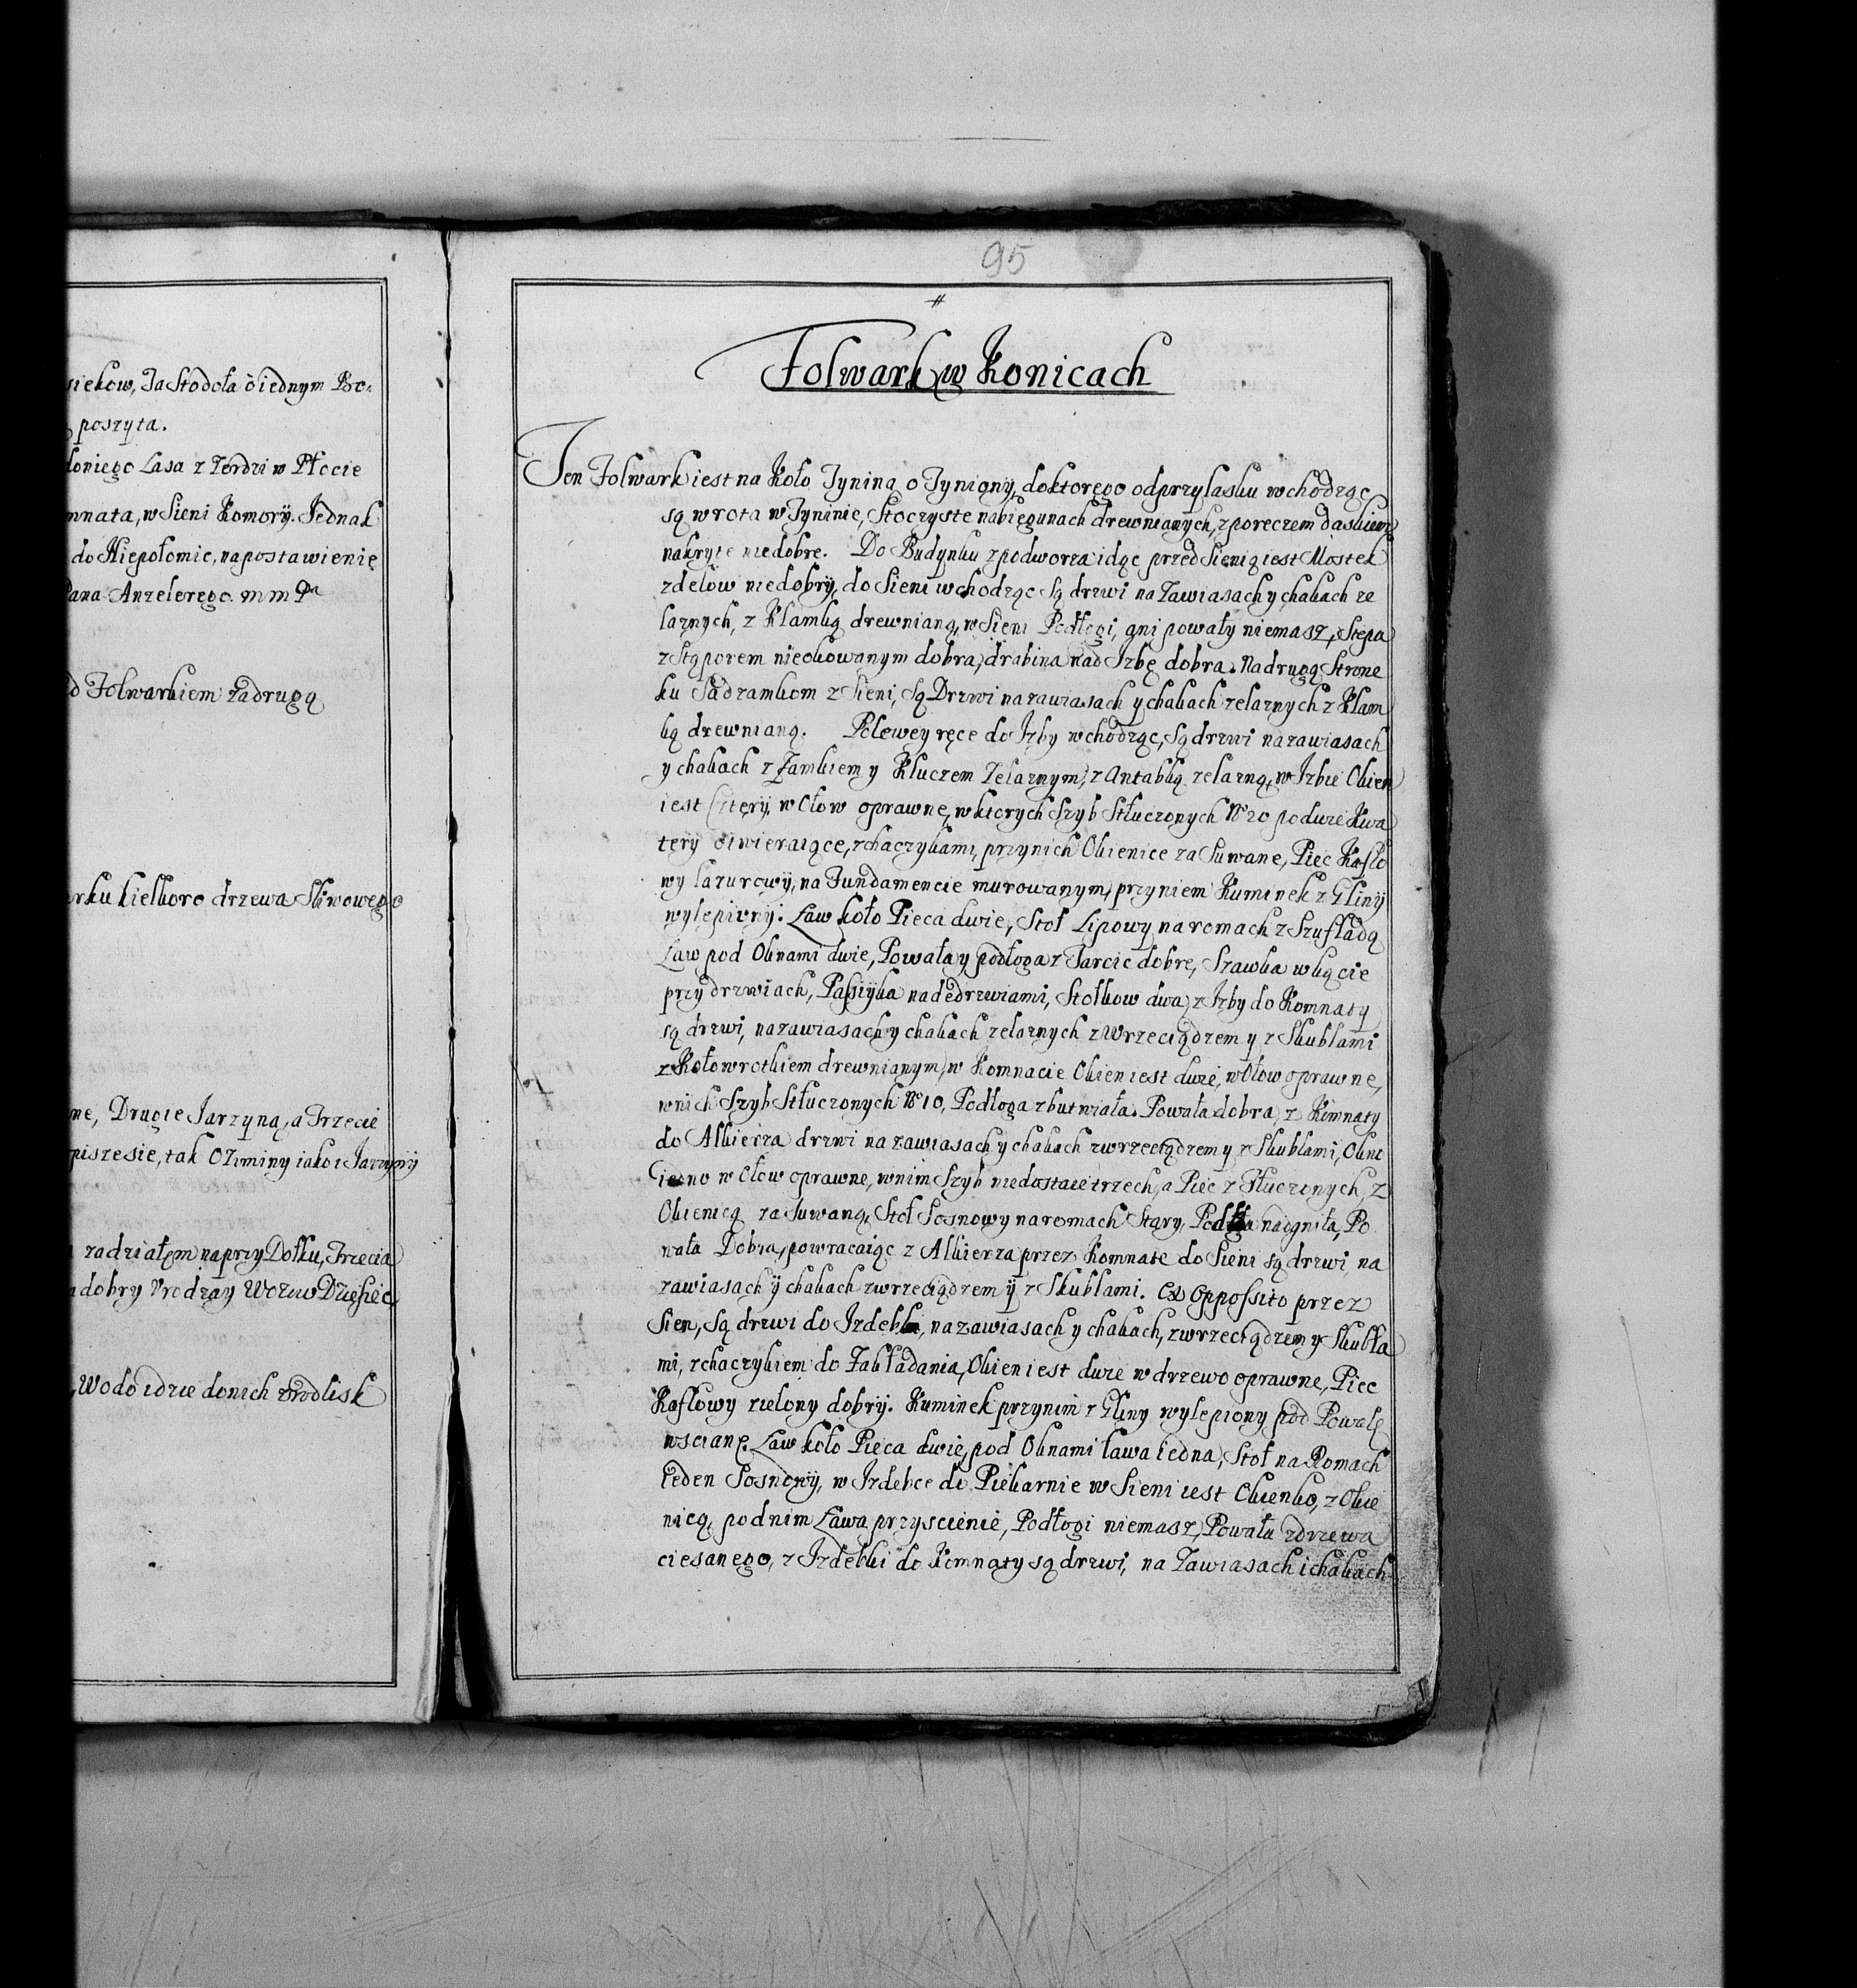 siekow, Ta Stodoła o iednym Bo:
poszyta.
Lasa z Zerdzi w Płocie
mnata, w Sieni Komorÿ. Jednak
do Niepołomic, na postawienię
Pana Anzelerego. mm Pa
Folwarkiem za drugą
rku kielkoro drzewa Sliwowego
ne, Drugie Jarzyną, a Trzecie
piszesie, tak Oziminy iako i Jarzynÿ
za działęm na przy Dołku, Trzecia
dobry Vrodzay Wozow Dziesięc
Wodo idzie do nich zrodlisk
95
Folwark w Konicach
Ten Folwark iest na Koło Tyniną o Tyniony, do ktorego od przylasku wchodząc
są wrota w Tyninie, Stoczyste na biegunach drewnianych, z poręczem daskiem
nakryte niedobre. Do Budynku z podworza idąc przed Sienią iest Mostek
z delow niedobrÿ, do Sieni wchodząc są drzwi na Zawiasach y chakach ze
laznych, z Klamką drewnianą, w Sieni Podłogi, ani powały niemasz, Stępa
z Stąporem nieokowanym dobra, drabina nad Izbę dobra. Na drugą Stronę
ku Sadzawkom z Sieni, są Drzwi na zawiasach y chakach zelaznych z Klam
ką drewnianą. Po lewey ręce do Izby wchodząc, są drzwi na zawiasach
y chakach z Zamkiem y Kluczem Zelaznym, z Antabką zelazną, w Izbie Okien
iest Cztery. w Ołow oprawne, w ktorych Szyb Stłuczonych No 20 po dwie Kwa
tery otwieraiące, z haczykami, przy nich Okienice za Suwane, Piec Kaflo
wy lazurowÿ, na Fundamencie murowanym, przy niem Kuminek z Glinÿ
wylepionÿ. Ław koło Pieca dwie, Stoł Lipowy na romach z Szufladą
Ław pod Oknami dwie, Powała y podłoga z Tarcic dobre, Szawka w kącie
przy drzwiach, Passÿka nade drzwiami, Stołkow dwa, z Izby do Komnaty
są drzwi, na zawiasach y chakach zelaznych z Wrzeciądzem y z Skublami
z Kołowrotkiem drewnianym, w Komnacie Okien iest dwie, w Ołow oprawne,
w nich Szyb Stłuczonych No 10, Podłoga zbutwiała. Powała dobra, z Komnaty
do Alkierza drzwi na zawiasach y chakach z wrzeciądzem y z Skublami, Okno
iedno w Ołow oprawne, w nim Szyb niedostaie trzech, a Piec z Tłuczonych, z
Okienicą za Suwaną, Stoł Sosnowy na romach Stary, Podłga nadgniła, Po
wała Dobra, powracaiąc z Alkierza przez Komnatę do Sieni są drzwi na
zawiasach ÿ chakach z wrzeciądzem ÿ z Skublami. Ex Opposito przez
Sien, są drzwi do Izdebki, na zawiasach y chakach, z wrzeciądzem y Skubla
mi, z chaczykiem do Zakładania, Okien iest dwie w drzewo oprawne, Piec
Kaflowy zielony dobrÿ. Kuminek przy nim z Gliny wylepiony pod Powałę
w scianę. Ław koło Pieca dwie, pod Oknami Ława Iedna, Stoł na Romach
Ieden Sosnowÿ, w Izdebce do Piekarnie w Sieni iest Okienko, z Okie
nicą, pod nim Ława przy scienie, Podłogi niemasz, Powała z drzewa
ciesanego, z Izdebki do Komnaty są drzwi, na Zawiasach i chakach